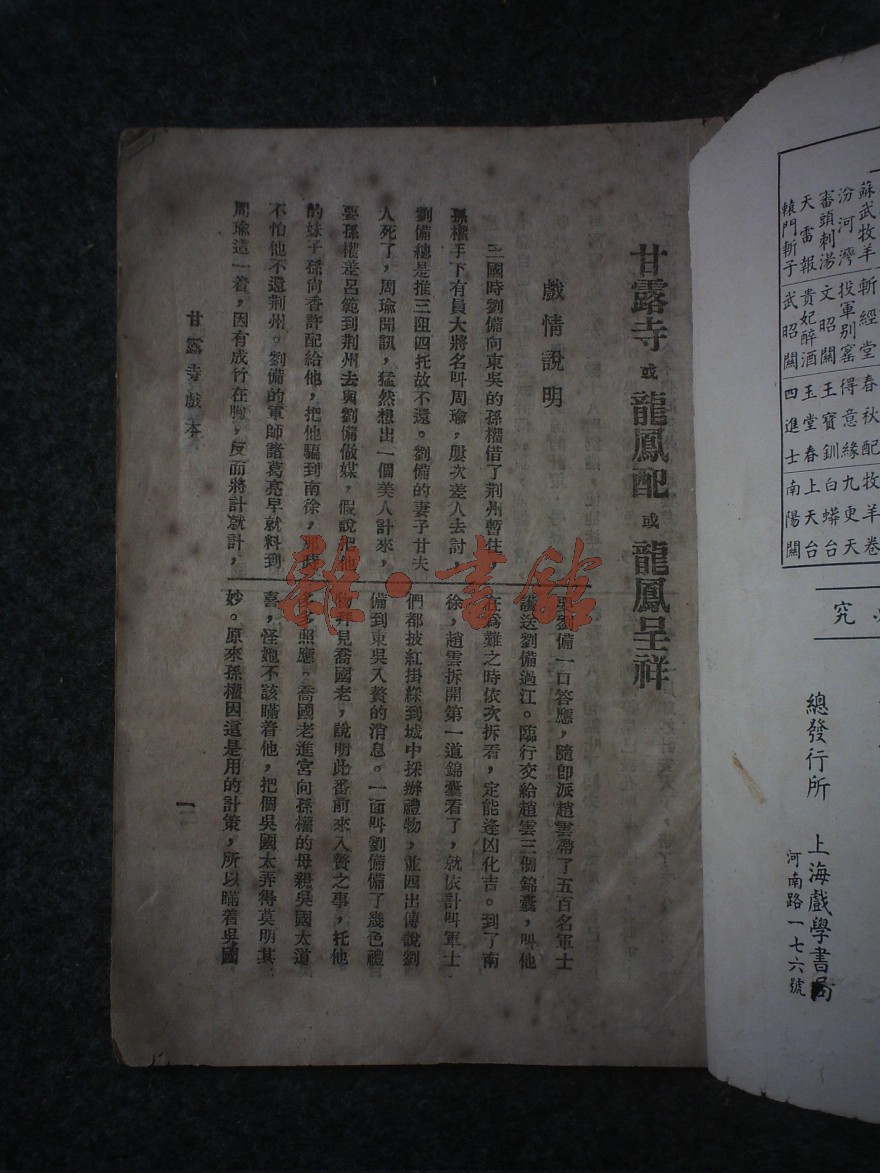 甘露寺 或 龍鳳配 或 龍鳳呈祥
戲情說明
三國時劉備向東吳的孫權借了荆州暫住，
孫權手下有員大將名叫周瑜，屢次差人去討，
劉備總是推三阻四托故不還。劉備的妻子甘夫
人死了，周瑜聞訊，猛然想出一個美人計來，
要孫權差呂範到荆州去與劉備做媒，假說把他
的妹子孫向香許配給他，把他騙到南徐，那時
不怕他不還荆州。劉備的軍師諸葛亮早就料到
周瑜這一着，因有成竹在胸，反而將計就計，
劉備一口答應，隨即派趙雲帶了五百名軍士
護送劉備過江。臨行交給趙雲三個錦囊，叫他
在爲難之時依次拆看，定能逢凶化吉。到了南
徐，趙雲拆開第一道錦囊看了，就依計叫軍士
們都披紅掛綵到城中採辦禮物，並四出傳說劉
備到東吳入贅的消息。一面叫劉備備了幾色禮
物拜見喬國老，說明此番前來入贅之事，托他
多照應。喬國老進宮向孫權的母親吳國太道
喜，怪她不該瞞着他，把個吳國太弄得莫明其
妙。原來孫權因這是用的計策，所以瞞着吳國
甘露寺戲本
一
雜·書館
蘇武牧羊 斬經堂 春秋配 牧羊卷
汾河灣 投軍别窰 得意緣 九更天
審頭刺湯 文昭關 王寶釧 白蟒台
天雷報 貴妃醉酒 玉堂春 上天台
轅門斬子 武昭關 四進士 南陽關
究
總發行所 上海戲學書局
河南路一七六號